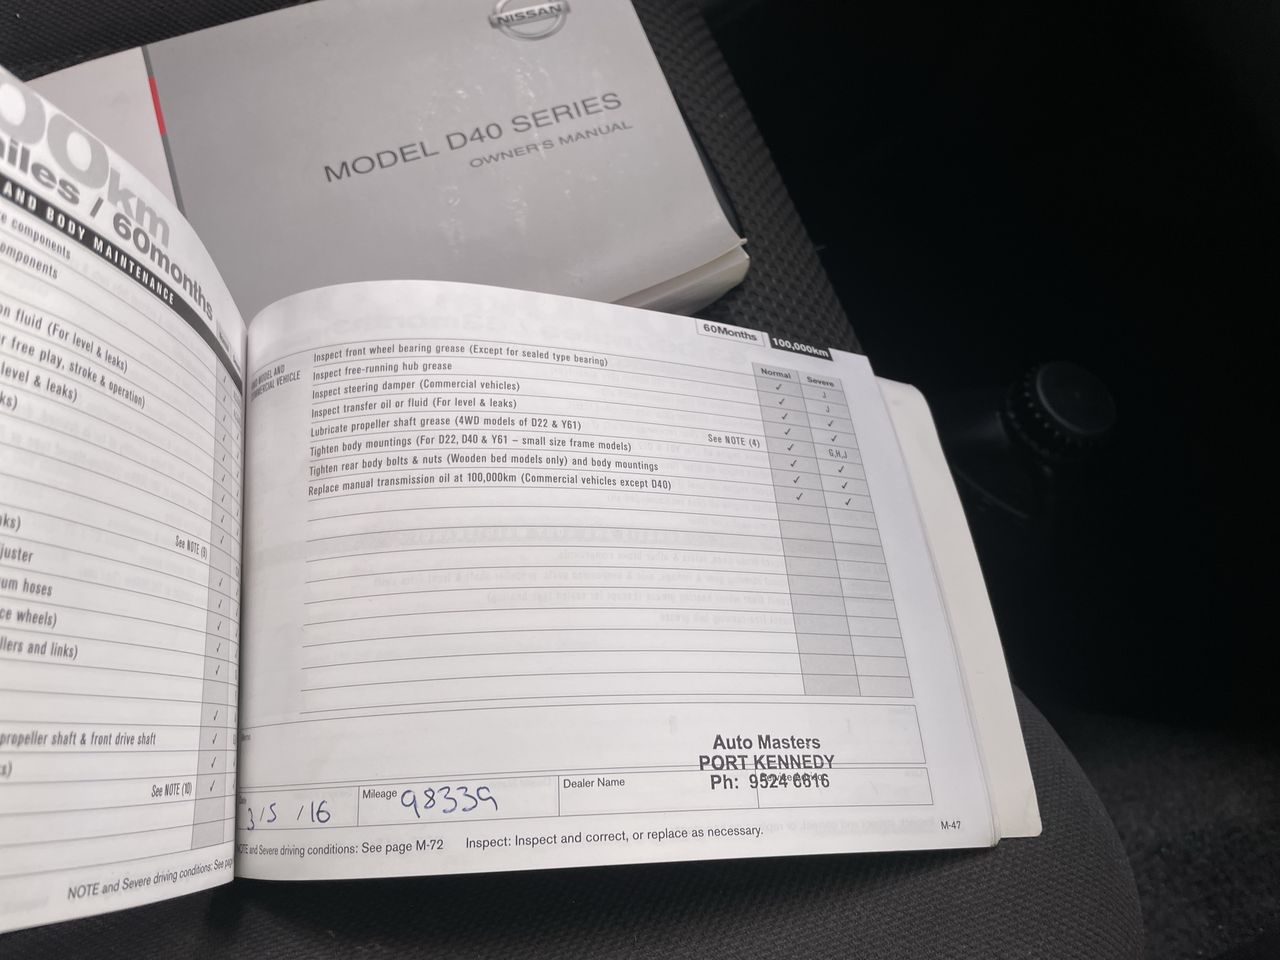 NISSAN
MODEL D40 SERIES
OWNER'S MANUAL
00km
miles / 60months
AND BODY MAINTENANCE
components
components
fluid (For level & leaks)
free play, stroke & operation)
level & leaks)
See NOTE (9)
hoses
wheels)
and links)
propeller shaft & front drive shaft
See NOTE (10)
NOTE and Severe driving conditions: See
60Months 100,000km
Normal Severe
MODEL AND
COMMERCIAL VEHICLE
Inspect front wheel bearing grease (Except for sealed type bearing) ✓ J
Inspect free-running hub grease ✓ J
Inspect steering damper (Commercial vehicles) ✓ ✓
Inspect transfer oil or fluid (For level & leaks) ✓ ✓
Lubricate propeller shaft grease (4WD models of D22 & Y61) See NOTE (4) ✓ G,H,J
Tighten body mountings (For D22, D40 & Y61 – small size frame models) ✓ ✓
Tighten rear body bolts & nuts (Wooden bed models only) and body mountings ✓ ✓
Replace manual transmission oil at 100,000km (Commercial vehicles except D40) ✓ ✓
Auto Masters
PORT KENNEDY
Ph: 9524 6616
3/5/16 Mileage 98339 Dealer Name
NOTE and Severe driving conditions: See page M-72 Inspect: Inspect and correct, or replace as necessary.
M-47